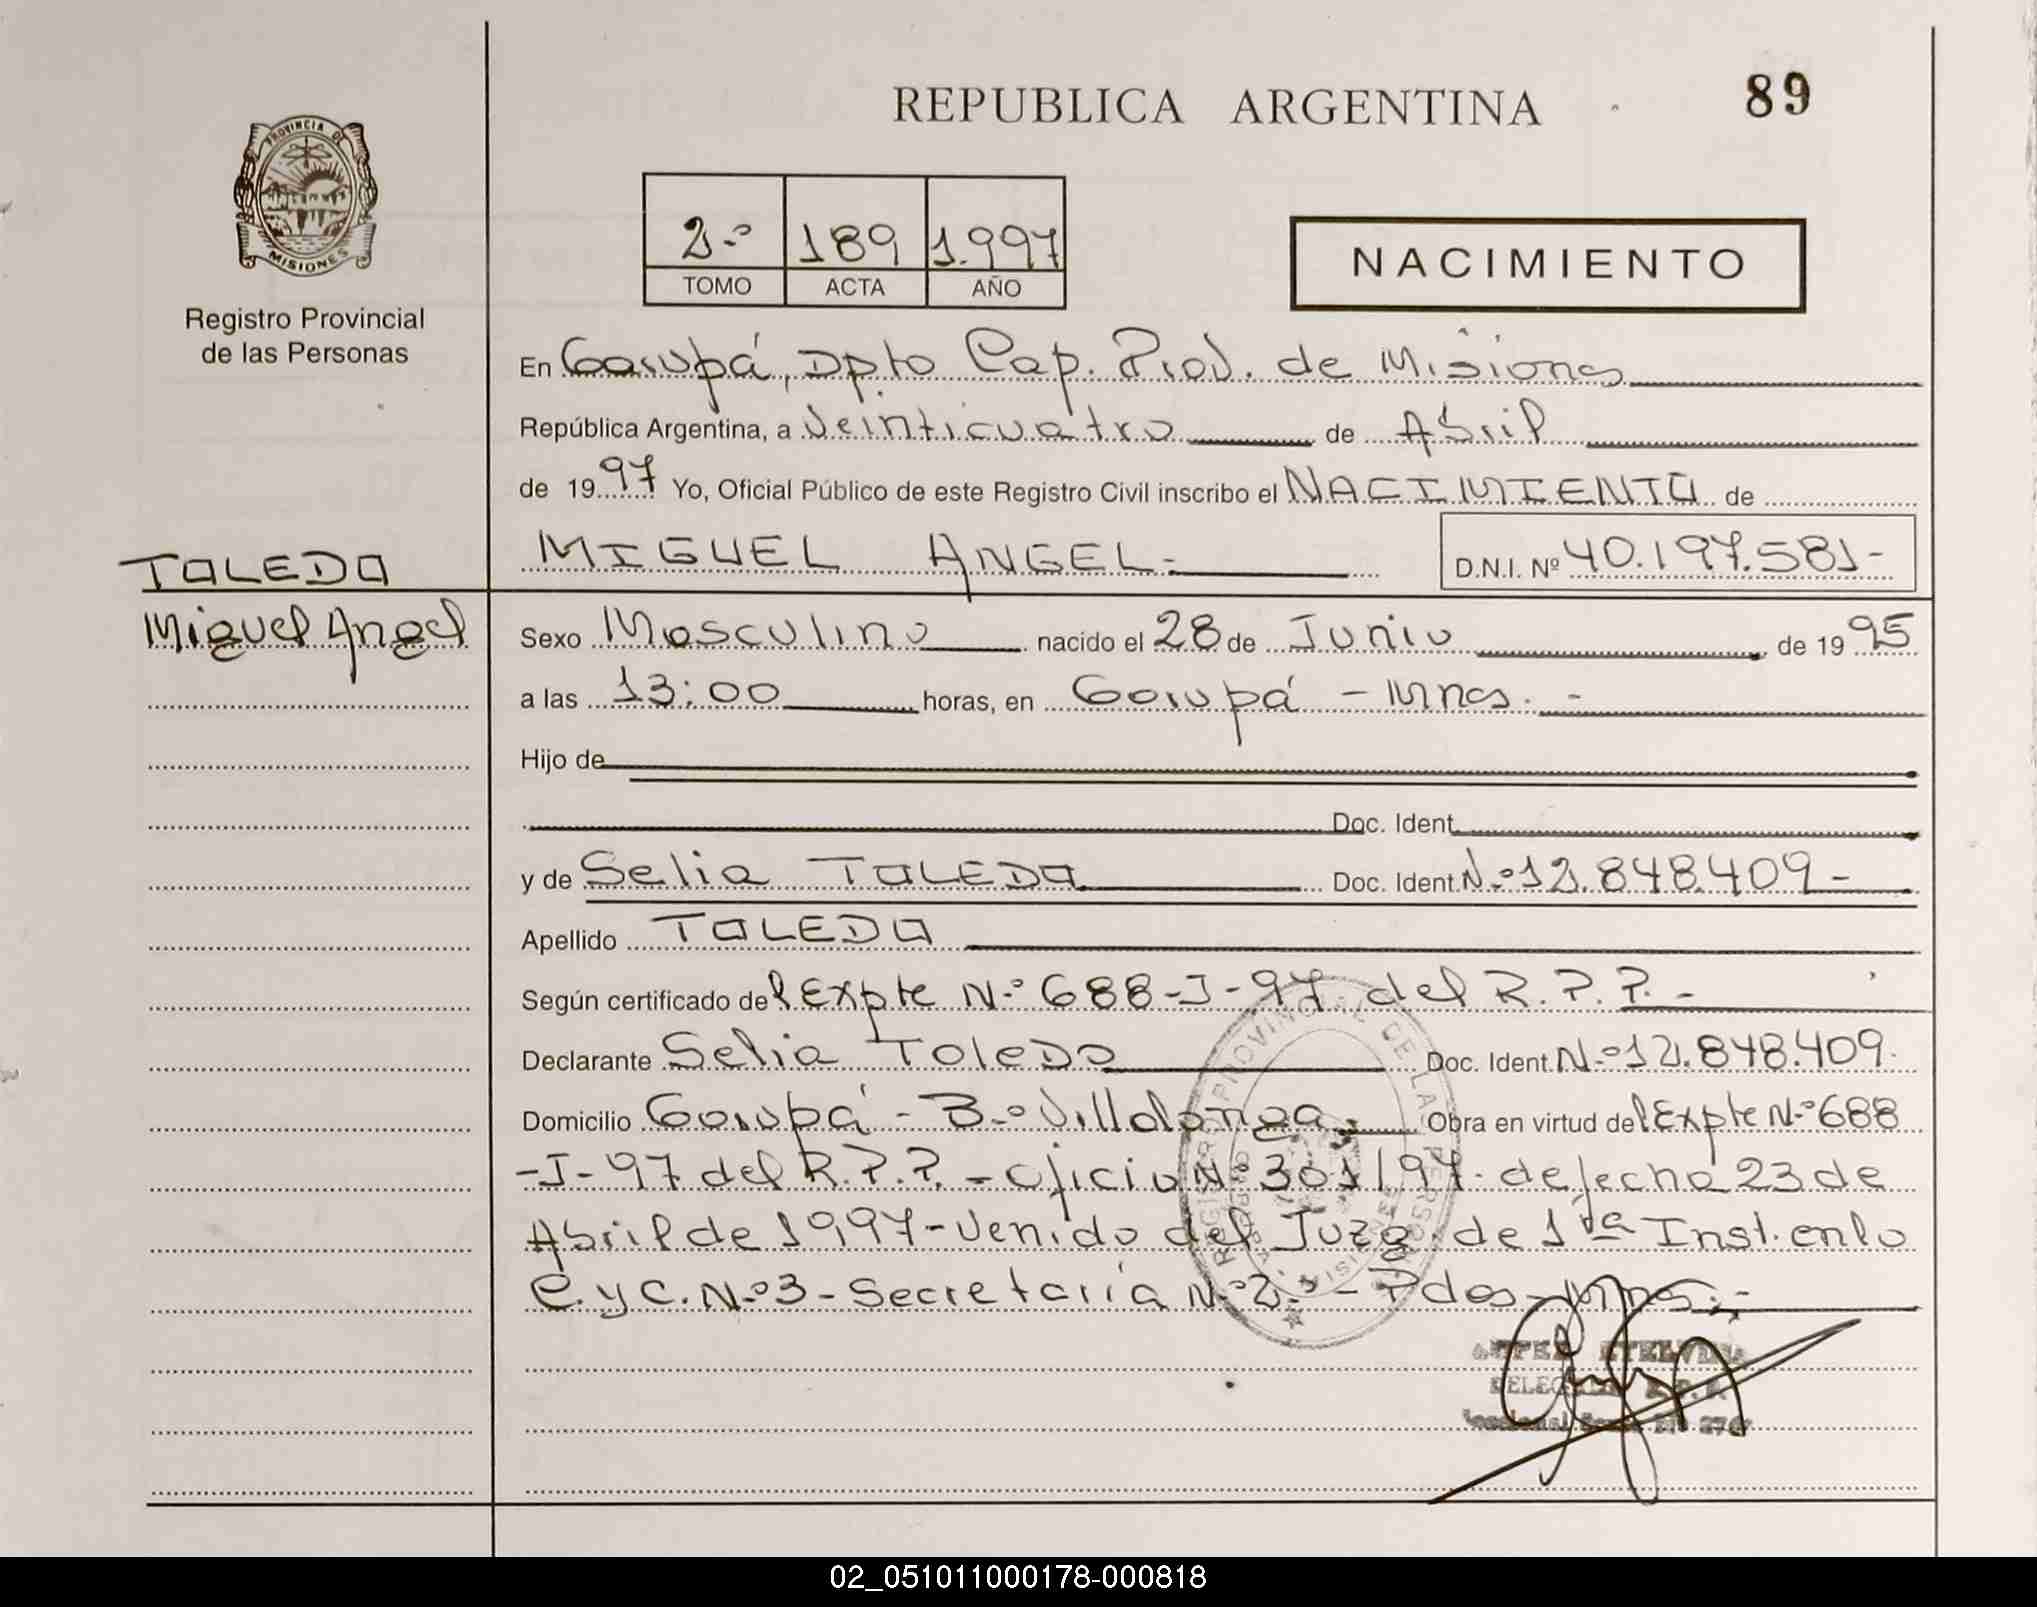 REPUBLICA ARGENTINA
89
PROVINCIA DE
MISIONES
Registro Provincial
de las Personas
2-º 189 1.997
TOMO ACTA AÑO
NACIMIENTO
En Garupá, Dpto Cap. Prov. de Misiones
República Argentina, a Veinticuatro de Abril
de 1997 Yo, Oficial Público de este Registro Civil inscribo el NACIMIENTO de
TOLEDO
MIGUEL ANGEL.- D.N.I. Nº 40.197.581-
Miguel Angel
Sexo Masculino nacido el 28 de Junio de 1995
a las 13:00 horas, en Garupá - Mnes. -
Hijo de
Doc. Ident.
y de Selia TOLEDO Doc. Ident. N.º 12.848.409-
Apellido TOLEDO
Según certificado del Expte N.º 688-I-97 del R.P.P.-
Declarante Selia Toledo Doc. Ident. N.º 12.848.409.
Domicilio Garupá - B.º Villalonga. Obra en virtud del Expte N.º 688
-I-97 del R.P.P. - Oficio N.º 301/97. de fecha 23 de
Abril de 1997-Venido del Juzg. de 1ra Inst. en lo
C. y C. N.º 3 - Secretaría N.º 2.º - Pdas - Mnes. -
REGISTRO PROVINCIAL DE LAS PERSONAS
MISIONES
02_051011000178-000818